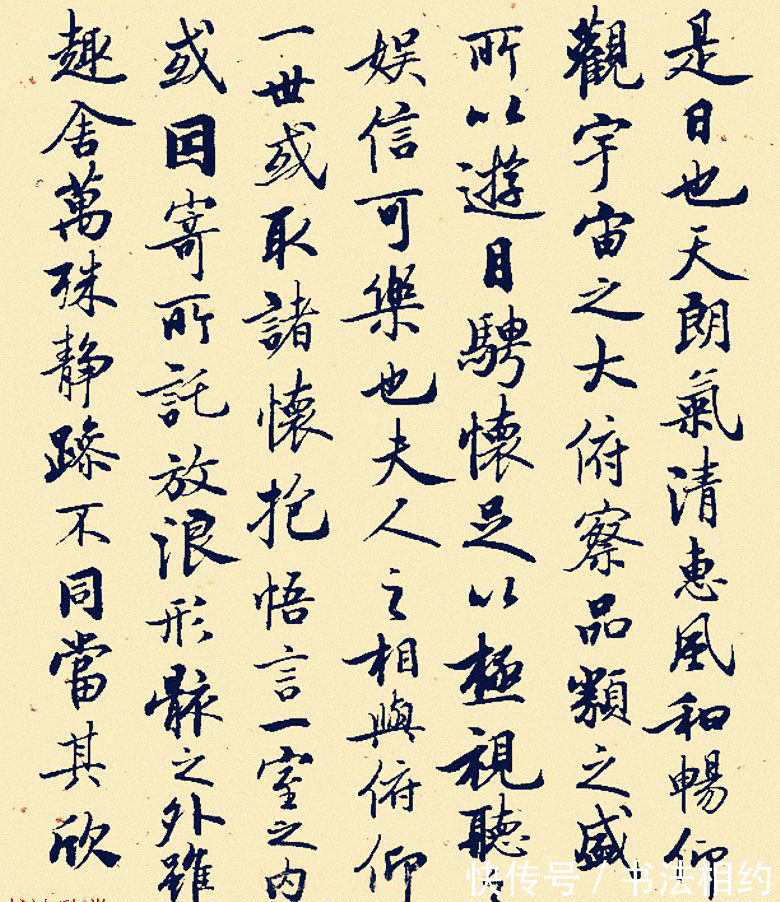 是日也天朗氣清惠風和暢仰
觀宇宙之大俯察品類之盛
所以遊目騁懷足以極視聽
娛信可樂也夫人之相與俯仰
一世或取諸懷抱悟言一室之内
或因寄所託放浪形骸之外雖
趣舍萬殊静躁不同當其欣
快传号 / 书法相约